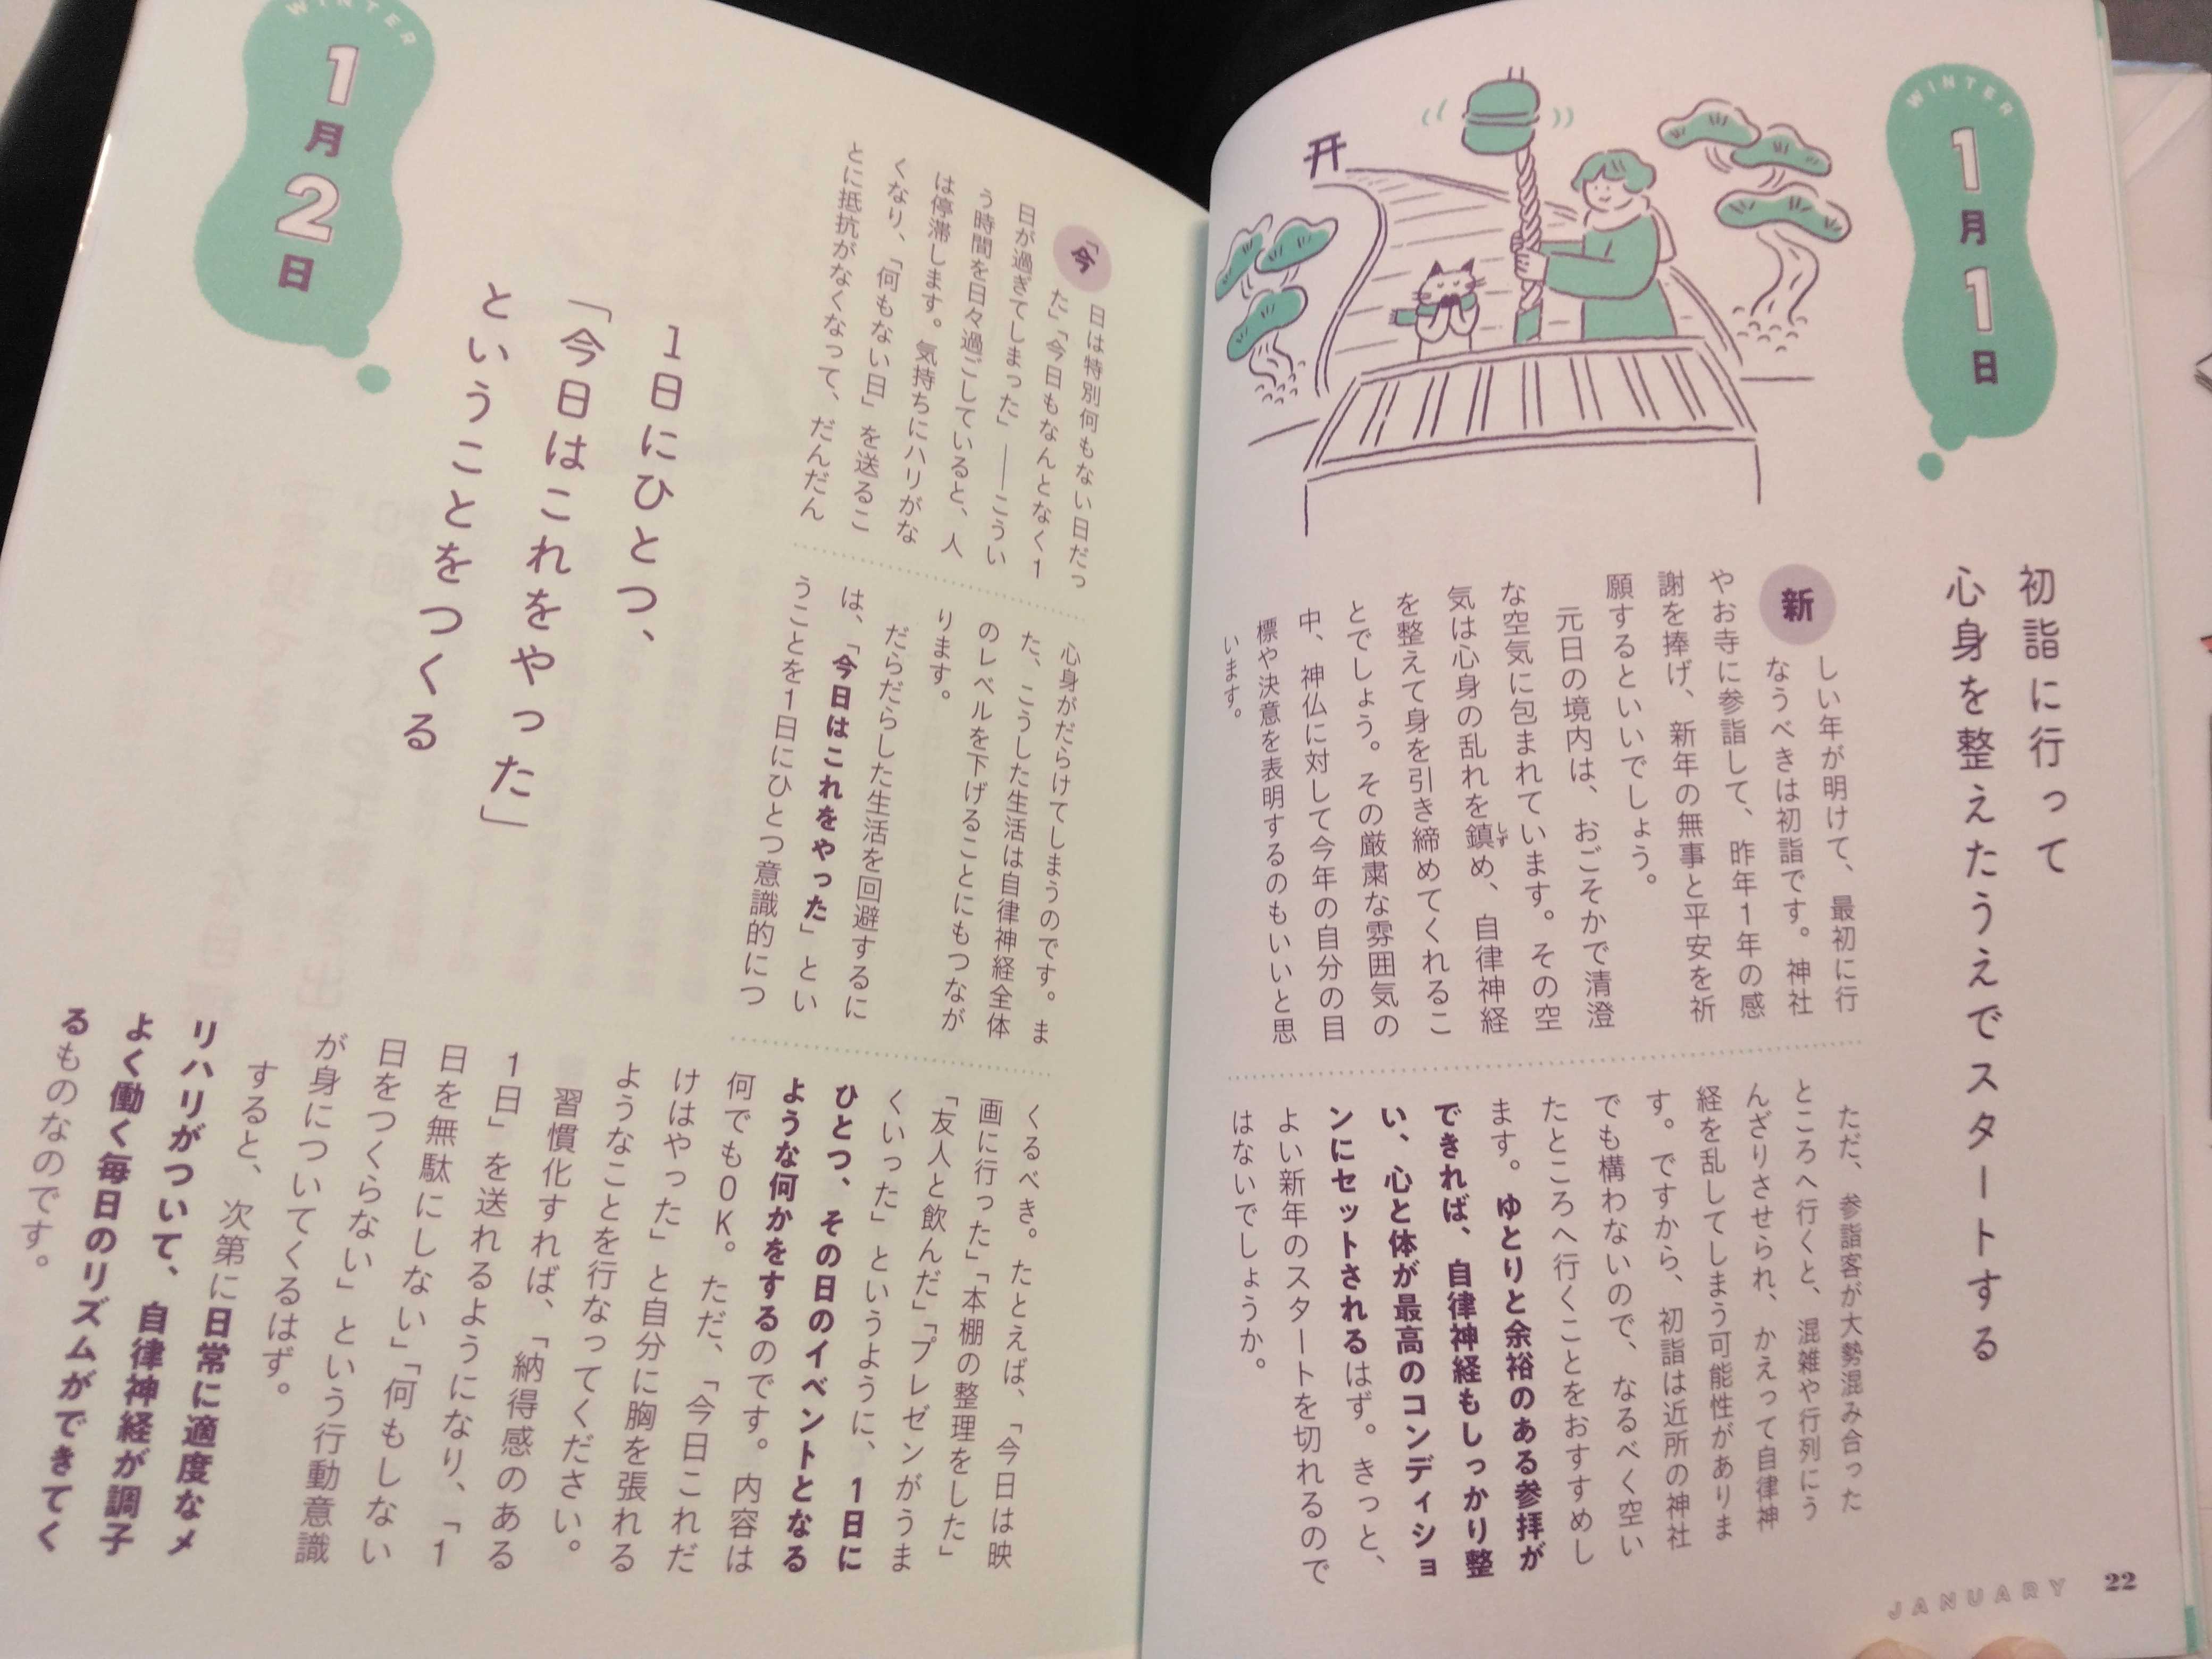 WINTER
1月1日
初詣に行って
心身を整えたうえでスタートする
新しい年が明けて、最初に行
なうべきは初詣です。神社
やお寺に参詣して、昨年1年の感
謝を捧げ、新年の無事と平安を祈
願するといいでしょう。
元日の境内は、おごそかで清澄
な空気に包まれています。その空
気は心身の乱れを鎮め、自律神経
しず
を整えて身を引き締めてくれるこ
とでしょう。その厳粛な雰囲気の
中、神仏に対して今年の自分の目
標や決意を表明するのもいいと思
います。
ただ、参詣客が大勢混み合った
ところへ行くと、混雑や行列にう
んざりさせられ、かえって自律神
経を乱してしまう可能性がありま
す。ですから、初詣は近所の神社
でも構わないので、なるべく空い
たところへ行くことをおすすめし
ます。ゆとりと余裕のある参拝が
できれば、自律神経もしっかり整
い、心と体が最高のコンディショ
ンにセットされるはず。きっと、
よい新年のスタートを切れるので
はないでしょうか。
JANUARY 22
WINTER
1月2日
1日にひとつ、
「今日はこれをやった」
ということをつくる
「今日は特別何もない日だっ
た」「今日もなんとなく1
日が過ぎてしまった」――こうい
う時間を日々過ごしていると、人
は停滞します。気持ちにハリがな
くなり、「何もない日」を送るこ
とに抵抗がなくなって、だんだん
心身がだらけてしまうのです。ま
た、こうした生活は自律神経全体
のレベルを下げることにもつなが
ります。
だらだらした生活を回避するに
は、「今日はこれをやった」とい
うことを1日にひとつ意識的につ
くるべき。たとえば、「今日は映
画に行った」「本棚の整理をした」
「友人と飲んだ」「プレゼンがうま
くいった」というように、1日に
ひとつ、その日のイベントとなる
ような何かをするのです。内容は
何でもOK。ただ、「今日これだ
けはやった」と自分に胸を張れる
ようなことを行なってください。
習慣化すれば、「納得感のある
1日」を送れるようになり、「1
日を無駄にしない」「何もしない
日をつくらない」という行動意識
が身についてくるはず。
すると、次第に日常に適度なメ
リハリがついて、自律神経が調子
よく働く毎日のリズムができてく
るものなのです。